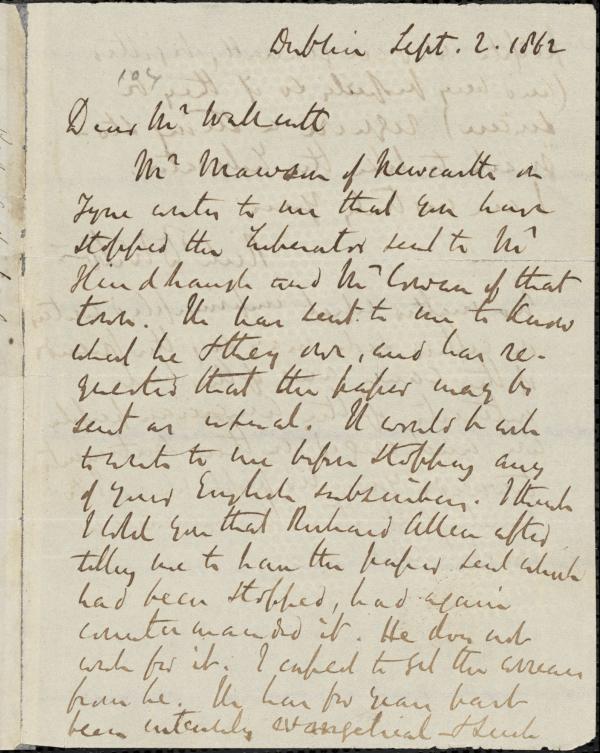 Dublin Sept. 2. 1862
Dear Mr Wallcutt
Mr Mawson of Newcastle on
Tyne writes to me that you have
stopped the Liberator sent to Mr
Hindhaugh and Mr Cowen of that
town. He has sent to me to know
what he & they owe, and has re-
quested that the paper may be
sent as usual. It would be well
to write to me before stopping any
of your English subscribers. I think
I told you that Richard Allen after
telling me to have the paper sent which
had been stopped, had again
countermanded it. He does not
wish for it. I expect to get the arrears
from he. He has for years past
been intensely evangelical - & such